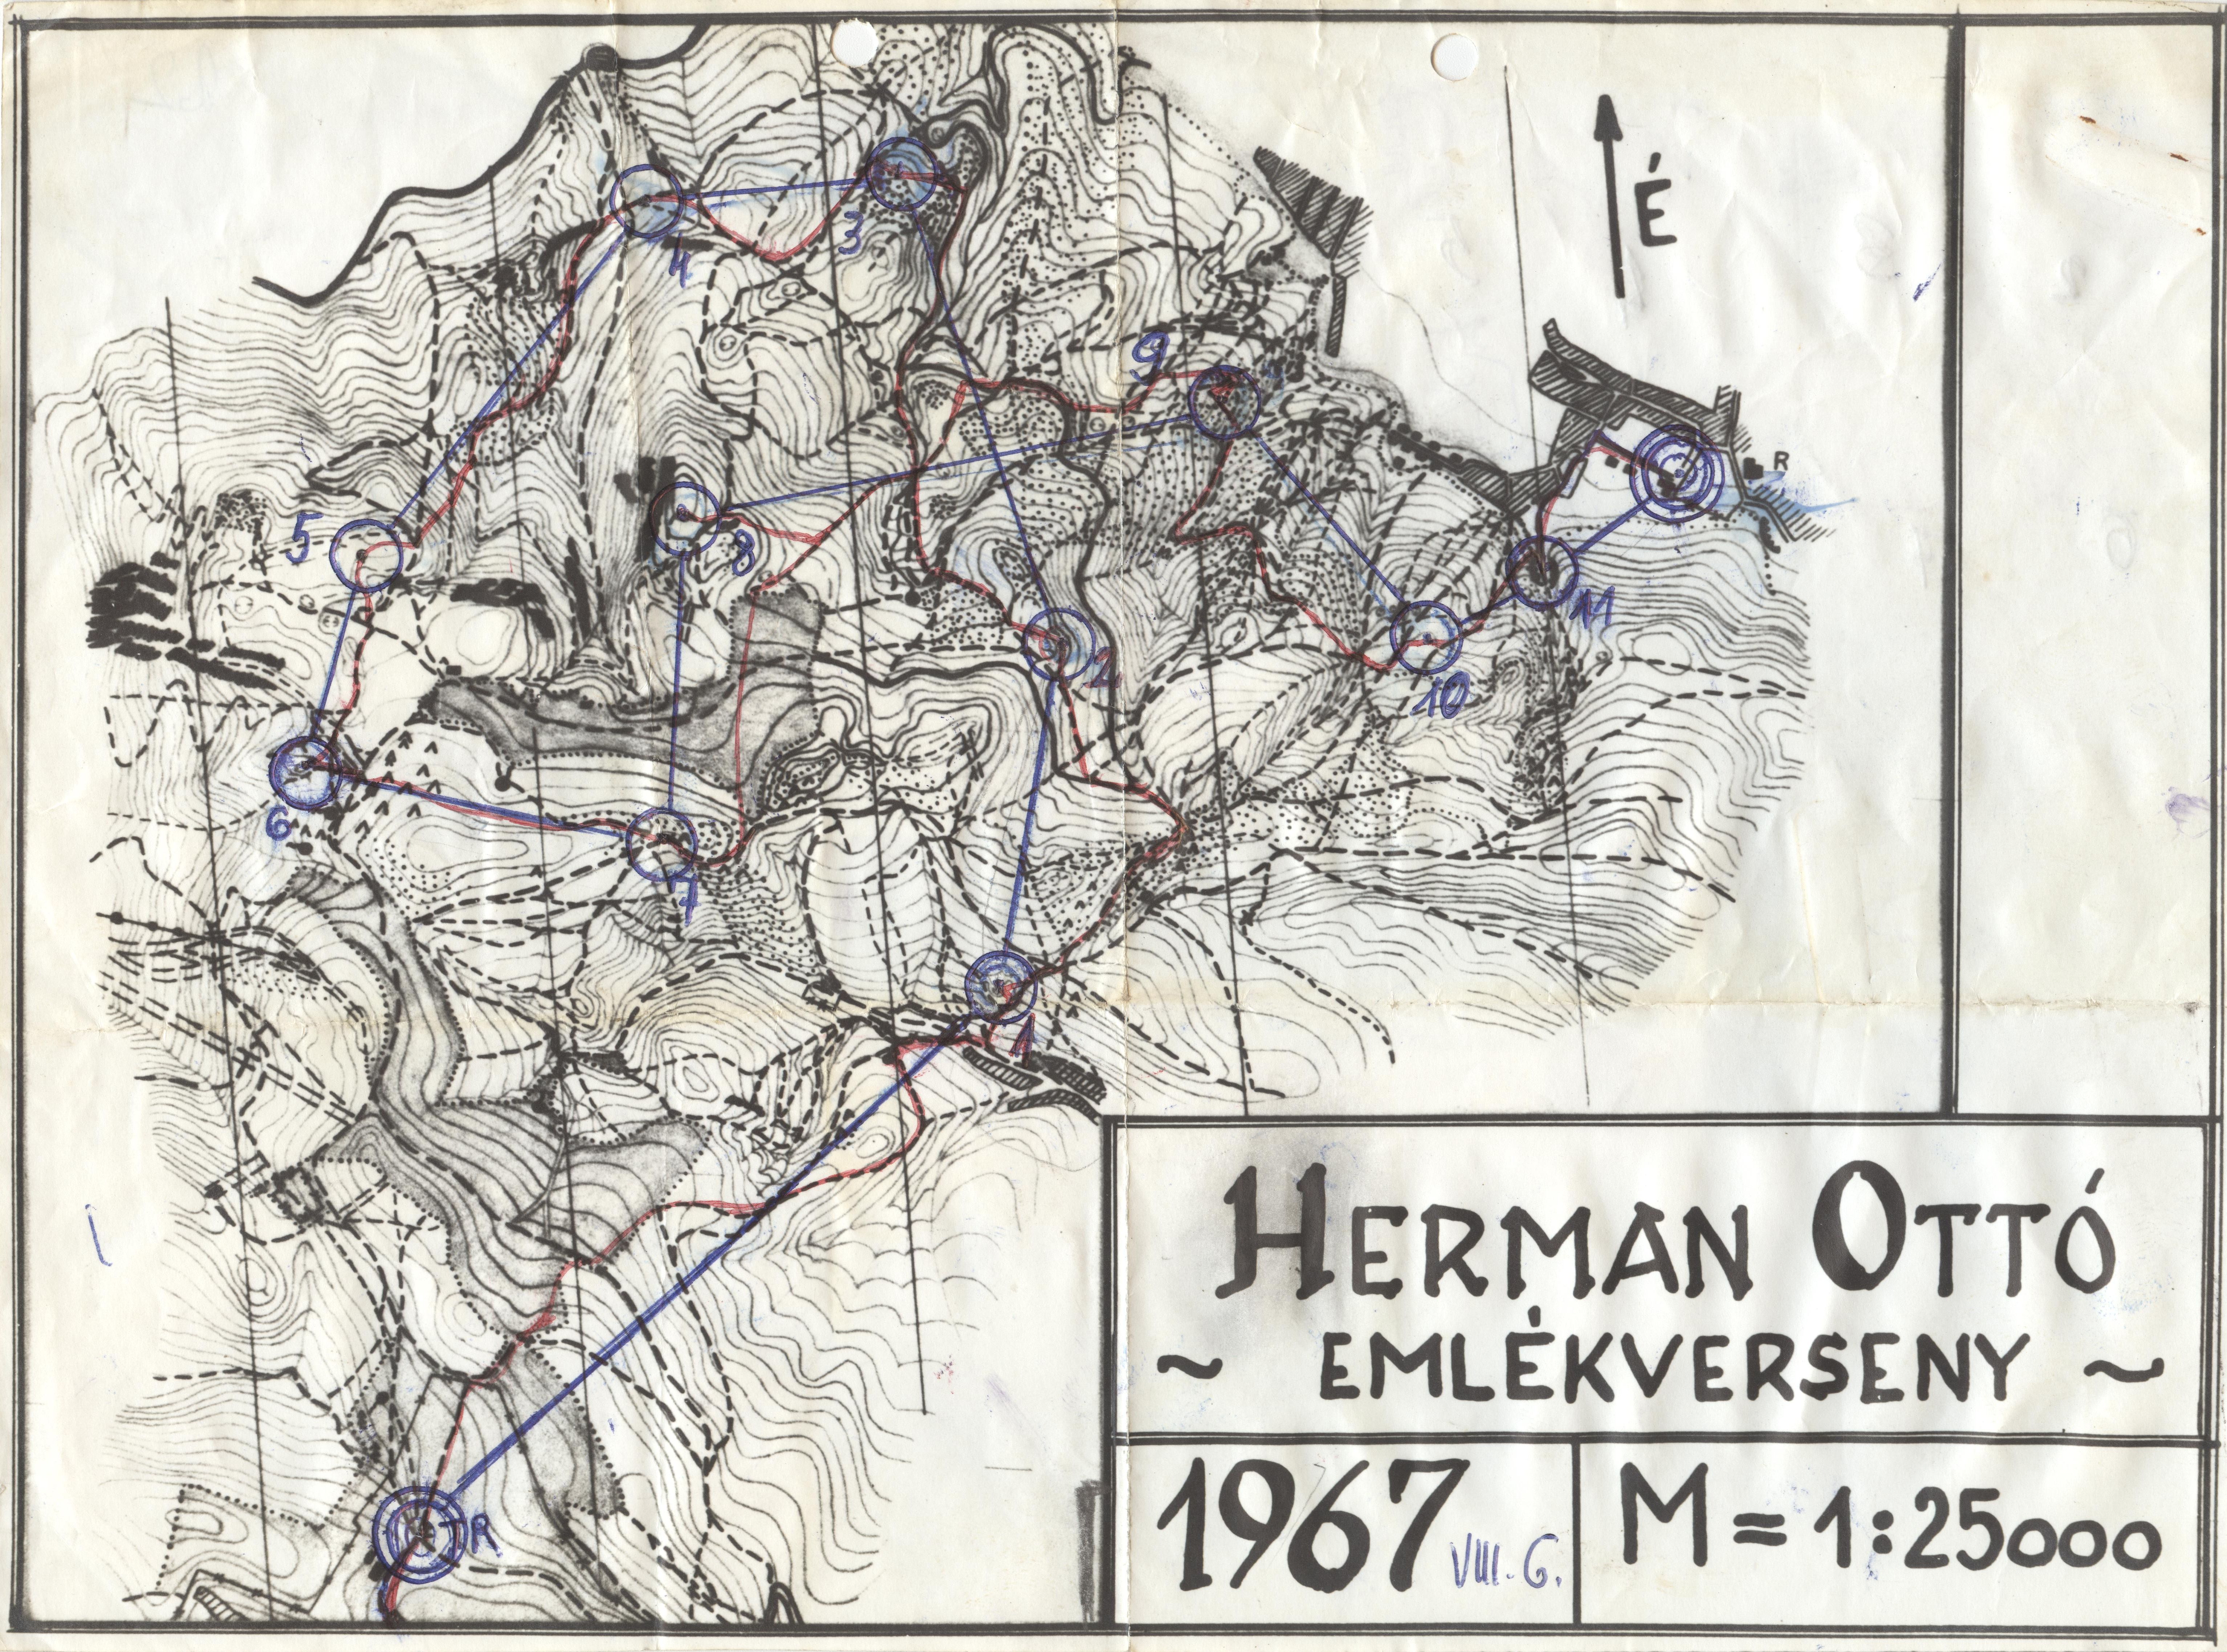 3
4
É
9
R
5
8
2
11
10
6
7
1
HERMAN OTTÓ
~ EMLÉKVERSENY ~
1967 VIII. 6.
M = 1:25000
R